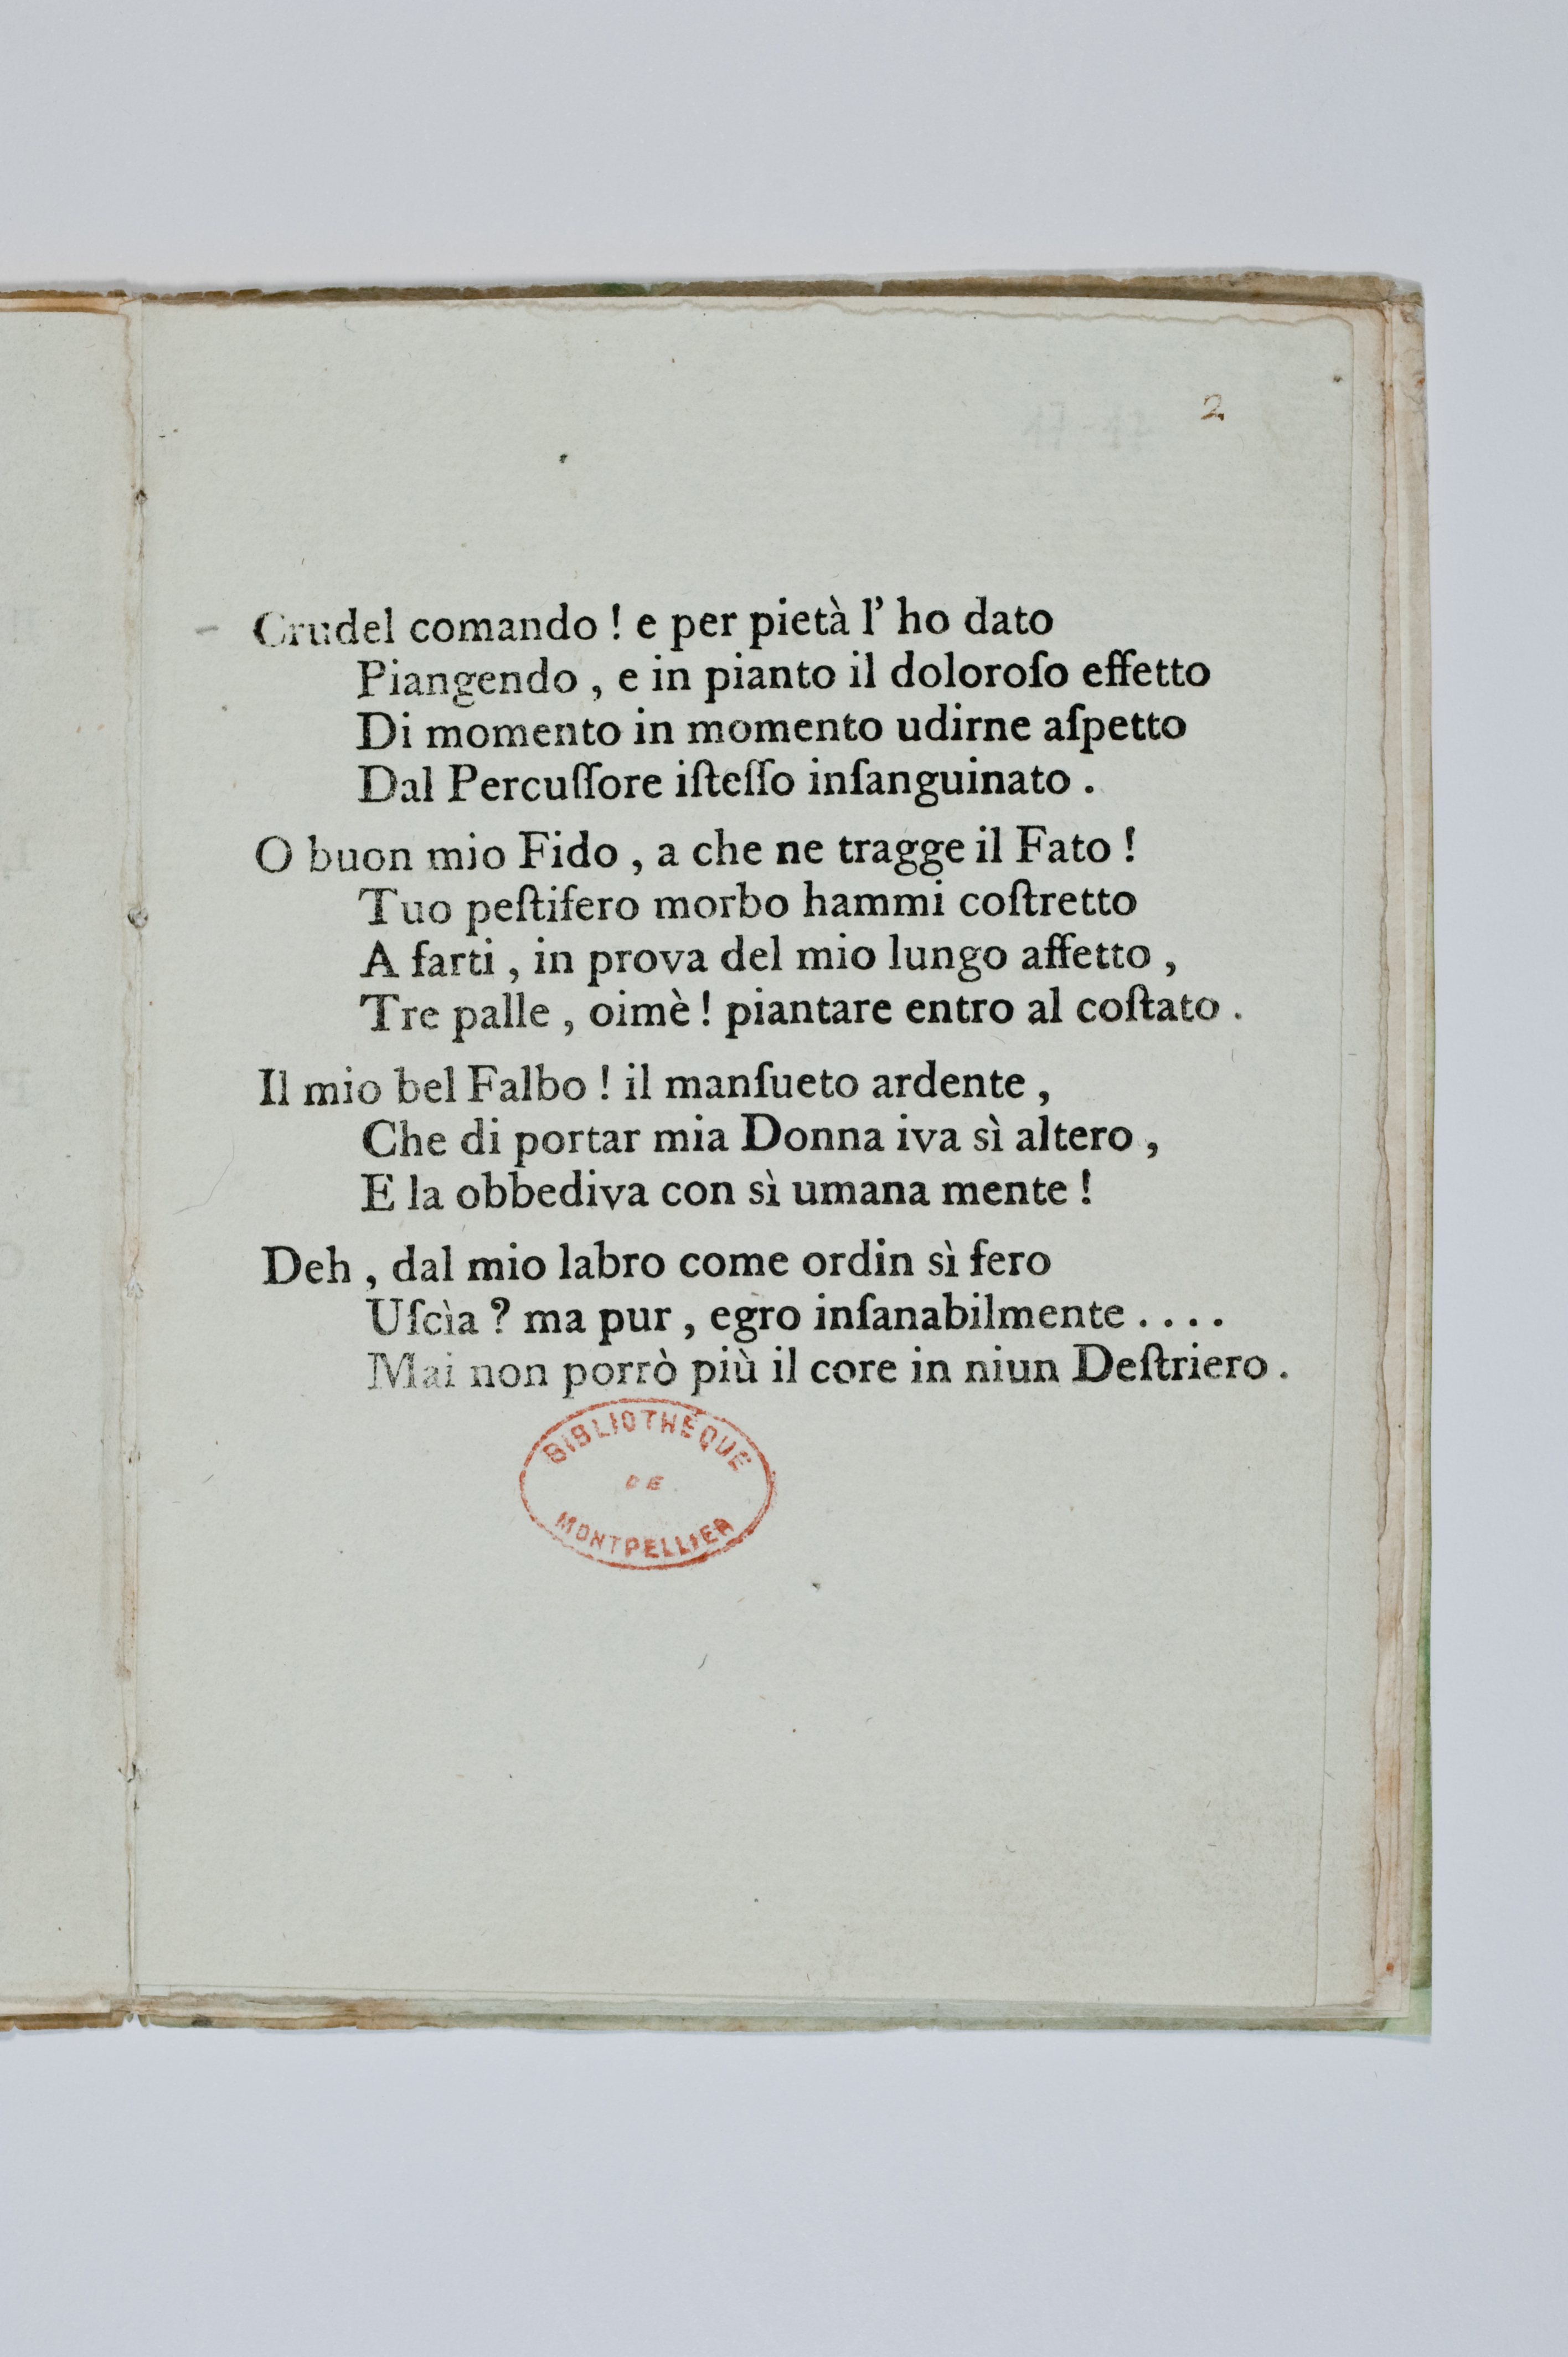 2.
Crudel comando ! e per pietà l' ho dato
Piangendo , e in pianto il doloroſo effetto
Di momento in momento udirne aſpetto
Dal Percuſſore iſteſſo inſanguinato .
O buon mio Fido , a che ne tragge il Fato !
Tuo peſtifero morbo hammi coſtretto
A farti , in prova del mio lungo affetto ,
Tre palle , oimè ! piantare entro al coſtato .
Il mio bel Falbo ! il manſueto ardente ,
Che di portar mia Donna iva sì altero ,
E la obbediva con sì umana mente !
Deh , dal mio labro come ordin sì fero
Uſcìa ? ma pur , egro inſanabilmente . . . .
Mai non porrò più il core in niun Deſtriero .
BIBLIOTHÉQUE
DE
MONTPELLIER